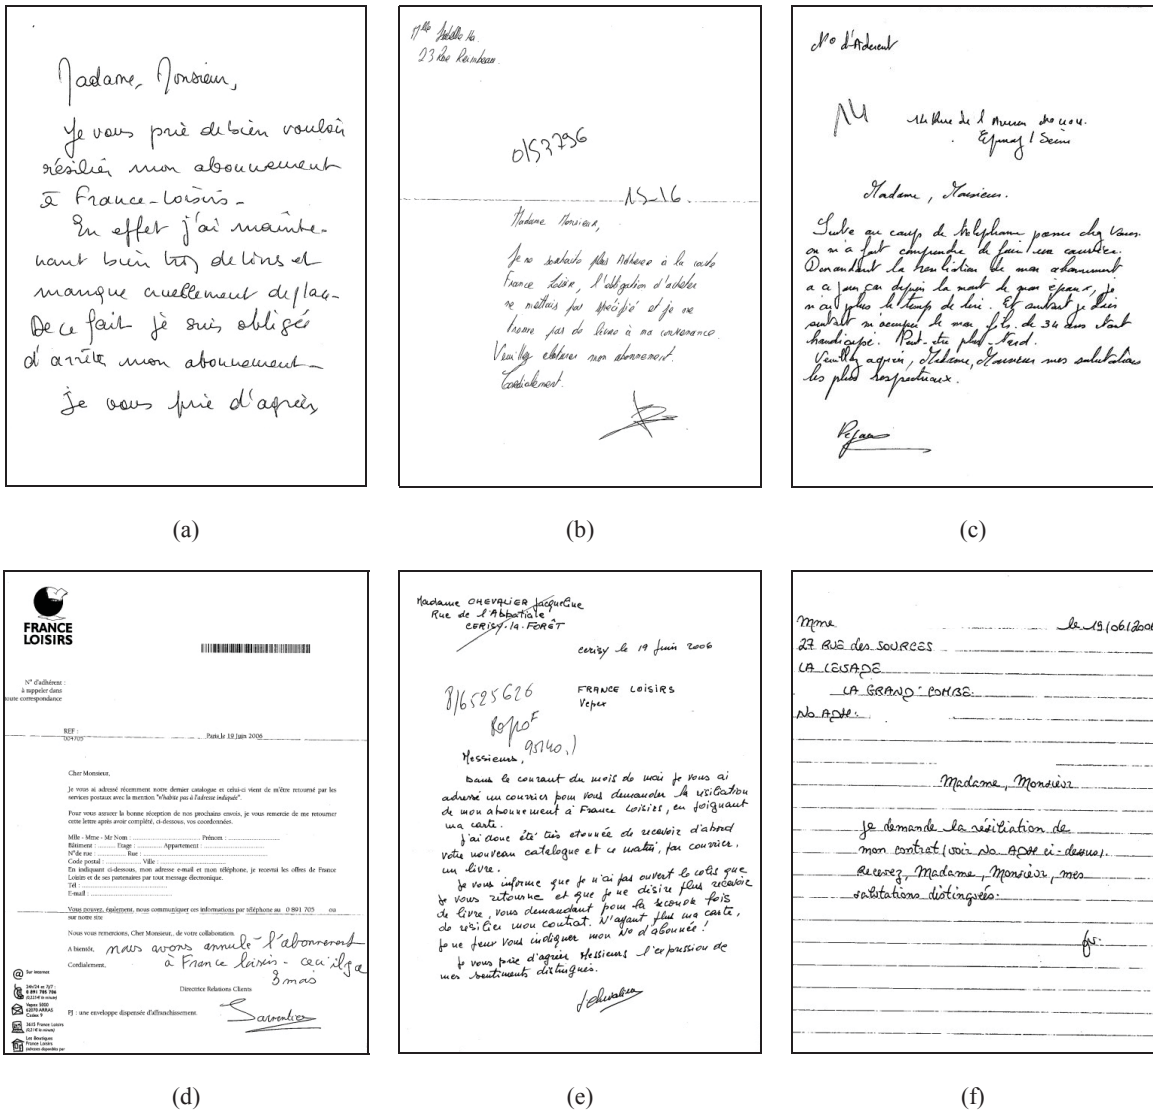 Madame, Monsieur,
Je vous prie de bien vouloir
résilier mon abonnement
à France-Loisirs-
En effet j'ai mainte-
nant bien trop de livres et
manque cruellement de plac-
De ce fait je suis obligée
d'arrêter mon abonnement-
Je vous prie d'agréer,
(a)
Mlle
23 Rue
0153796
15-16.
Madame Monsieur,
Je ne souhaite plus Adhérer à la carte
France Loisir, l'obligation d'acheter
ne m'étais pas spécifié et je ne
trouve pas de livres à ma convenance.
Veuillez clôturer mon abonnement.
Cordialement.
(b)
N° d'Adherent
14
14 Rue de l
Epinay / Seine
Madame, Monsieur.
Suite au coup de telephone passer chez vous.
on m'a fait comprendre de faire un courrier.
Demandant la resiliation de mon abonnement
a ce jour car depuis la mort de mon épaux, je
n'ai plus le temps de lire. Et autant je dois
autant m'occuper de mon fils de 34 ans etant
handicapé. Peut-etre plus-tard.
Veuillez agréer, Madame, Monsieur mes salutations
les plus respectueux.
(c)
FRANCE
LOISIRS
N° d'adhérent :
à rappeler dans
toute correspondance
REF :
004705
Paris le 19 Juin 2006
Cher Monsieur,
Je vous ai adressé récemment notre dernier catalogue et celui-ci vient de m'être retourné par les
services postaux avec la mention "n'habite pas à l'adresse indiquée".
Pour vous assurer la bonne réception de nos prochains envois, je vous remercie de me retourner
cette lettre après avoir complété, ci-dessous, vos coordonnées.
Mlle - Mme - Mr Nom : .................... Prénom : ....................
Bâtiment : ........ Etage : ........ Appartement : ....................
N° de rue : ........ Rue : ....................
Code postal : ............ Ville : ....................
En indiquant ci-dessous, mon adresse e-mail et mon téléphone, je recevrai les offres de France
Loisirs et de ses partenaires par tout message électronique.
Tél : ....................
E-mail : ....................
Vous pouvez, également, nous communiquer ces informations par téléphone au 0 891 705 ou
sur notre site
Nous vous remercions, Cher Monsieur,, de votre collaboration.
A bientôt,
nous avons annulé l'abonnement
Cordialement,
à France loisirs - ceci il y a
3 mois
Directrice Relations Clients
PJ : une enveloppe dispensée d'affranchissement.
Sur internet
24h/24 et 7j/7 :
0 891 705 706
Vepex 5000
62070 ARRAS
Cedex 9
3615 France Loisirs
Les Boutiques
France Loisirs
(d)
Madame CHEVALIER Jacqueline
Rue de l'Abbatiale
CERISY-la-FORÊT
cerisy le 19 Juin 2006
8/6525626
FRANCE LOISIRS
Vepex
95140.
Messieurs,
Dans le courant du mois de mai je vous ai
adressé un courrier pour vous demander la résiliation
de mon abonnement à France Loisirs, en joignant
ma carte.
J'ai donc été très étonnée de recevoir d'abord
votre nouveau catalogue et ce matin, par courrier,
un livre.
Je vous informe que je n'ai pas ouvert le colis que
je vous retourne et que je ne désire plus recevoir
de livre, vous demandant pour la seconde fois
de résilier mon contrat. N'ayant plus ma carte,
je ne peux vous indiquer mon No d'abonnée!
Je vous prie d'agréer Messieurs l'expression de
mes sentiments distingués.
JChevalier
(e)
Mme
le 19/06/2006
27 RUE des SOURCES
LA LEVADE
LA GRAND'COMBE.
No ADH:
Madame, Monsieur
Je demande la résiliation de
mon contrat (voir No. ADH ci-dessus).
Recevez, Madame, Monsieur, mes
salutations distinguées.
(f)